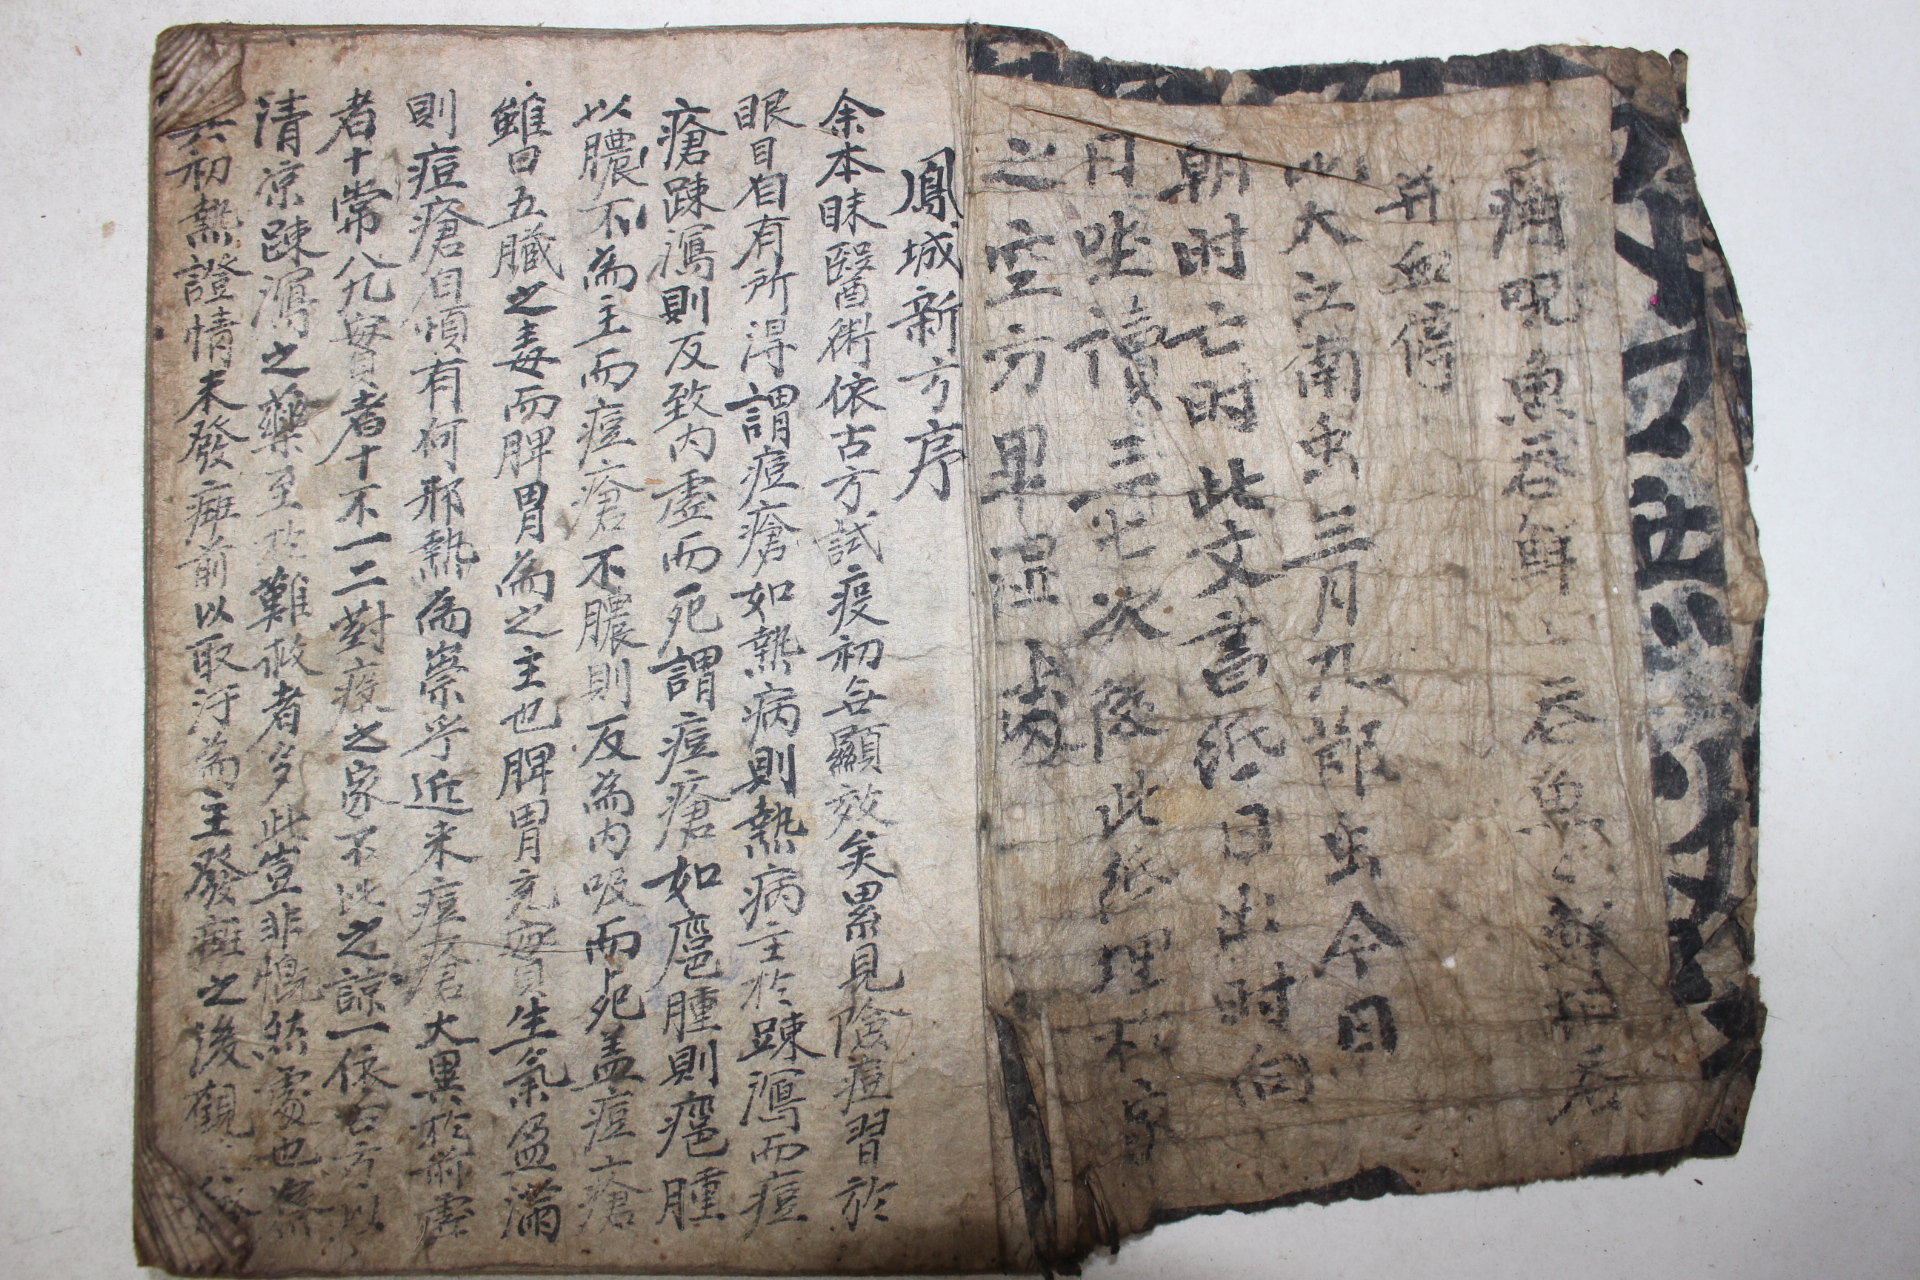 呪魚吞鮮
吞魚
并血傳
大江南虫三月九郎虫今日
朝时亡时此文書紙日出时向
日坐讀三七次後此紙埋
之空方卑湿
鳳城新方序
余本昧醫術依古方試疫初無顯效矣累見陰痘習於
眼目自有所得謂痘瘡如熱病則熱病主於踈瀉而痘
瘡踈瀉則反致內虛而死謂痘瘡如瘡腫則瘡腫
以膿不為主而痘瘡不膿則反為內吸而死盖痘瘡
雖曰五臟之毒而脾胃為之主也脾胃充實生氣盈滿
則痘瘡自順有何邪熱為祟乎近来痘瘡大異於前虛
者十常八九實者十不一二對疫之家不此之諒一依古方以
清凉踈瀉之藥至於難救者多此豈非慨然處也
其初熱證情未發斑前以取汗為主發斑之後觀